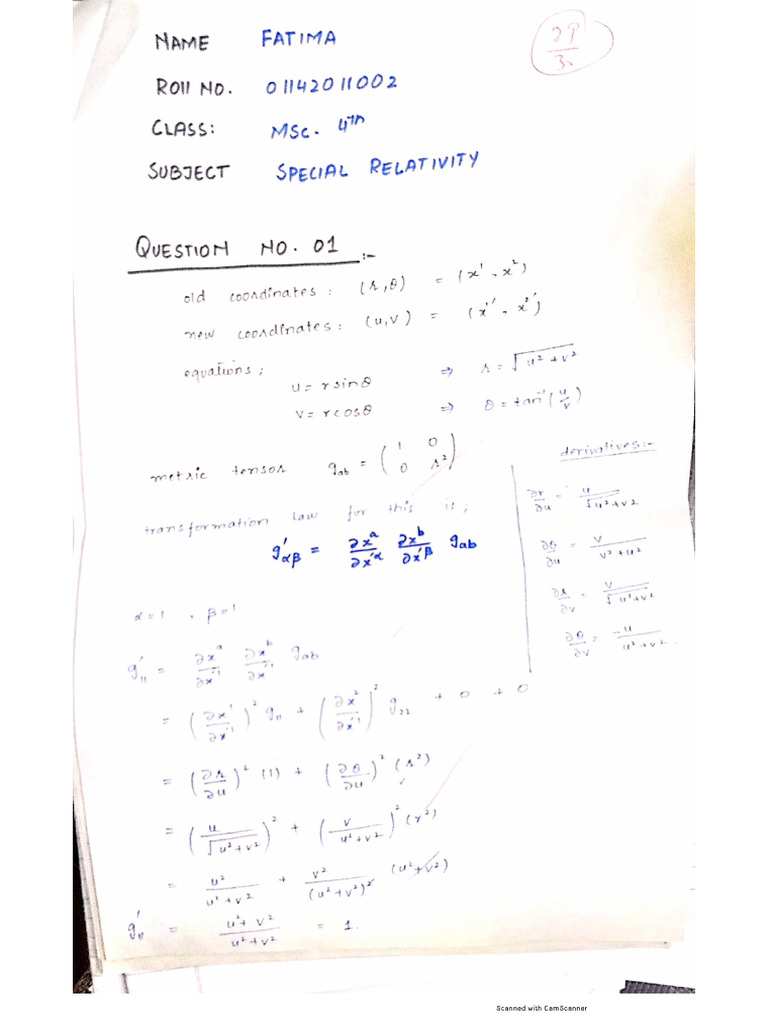 NAME FATIMA
29/30
Roll NO. 01142011002
CLASS: MSc. 4th
SUBJECT SPECIAL RELATIVITY
QUESTION NO. 01 :-
old coordinates : (r,θ) = (x¹, x²)
new coordinates : (u,v) = (x'¹, x'²)
equations ;
u = r sinθ ⇒ r = √(u²+v²)
v = r cosθ ⇒ θ = tan⁻¹(u/v)
metric tensor g_ab = (1 0
0 r²)
transformation law for this is ;
g'_αβ = ∂x^a/∂x'^α ∂x^b/∂x'^β g_ab
derivatives:-
∂r/∂u = u/√(u²+v²)
∂θ/∂u = v/(v²+u²)
∂r/∂v = v/√(u²+v²)
∂θ/∂v = -u/(u²+v²)
α=1 , β=1
g'_11 = ∂x^a/∂x'^1 ∂x^b/∂x'^1 g_ab
= (∂x¹/∂x'¹)² g_11 + (∂x²/∂x'¹)² g_22 + 0 + 0
= (∂r/∂u)² (1) + (∂θ/∂u)² (r²)
= (u/√(u²+v²))² + (v/(u²+v²))² (r²)
= u²/(u²+v²) + v²/(u²+v²)² (u²+v²)
g'_11 = (u²+v²)/(u²+v²) = 1.
Scanned with CamScanner